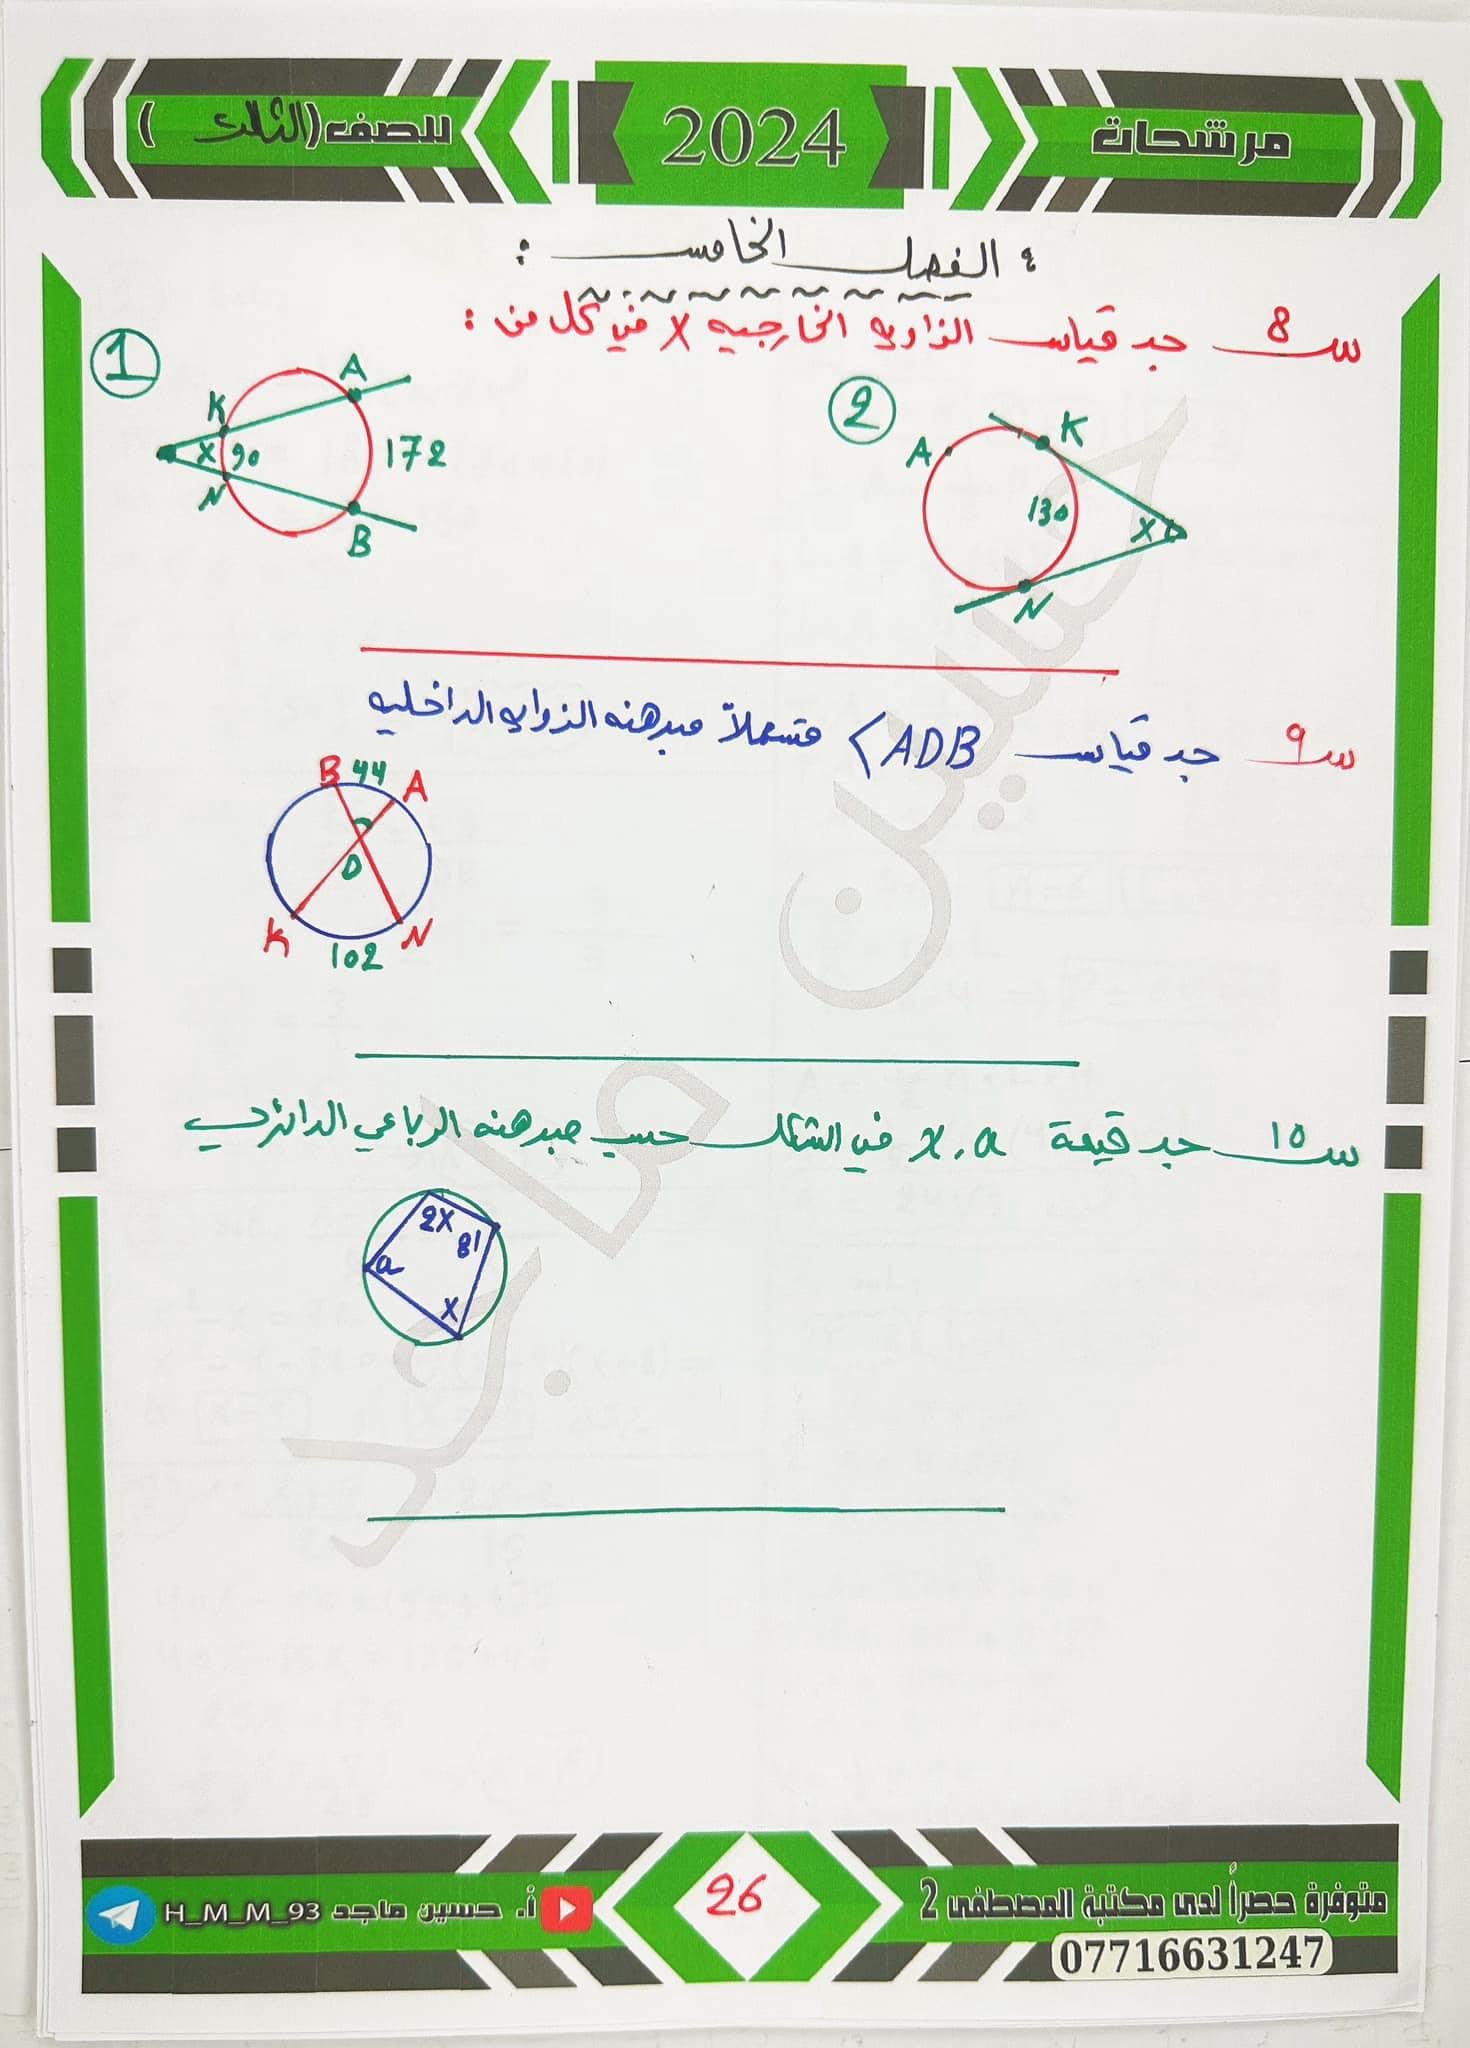 مرشحات
2024
للصف (الثالث)
الفصل الخامس :
س8 جد قياس الزاويه الخارجيه x في كل من :
1
A
K
x
90
172
N
B
2
K
A
130
x
N
س9 جد قياس ADB > مستعملاً مبرهنه الزوايه الداخليه
B 44 A
D
K N
102
س10 جد قيمة x , a في الشكل حسب مبرهنه الرباعي الدائري
2x
81
a
x
حسين ماجد
متوفرة حصراً لدى مكتبة المصطفى 2
07716631247
26
أ. حسين ماجد H_M_M_93